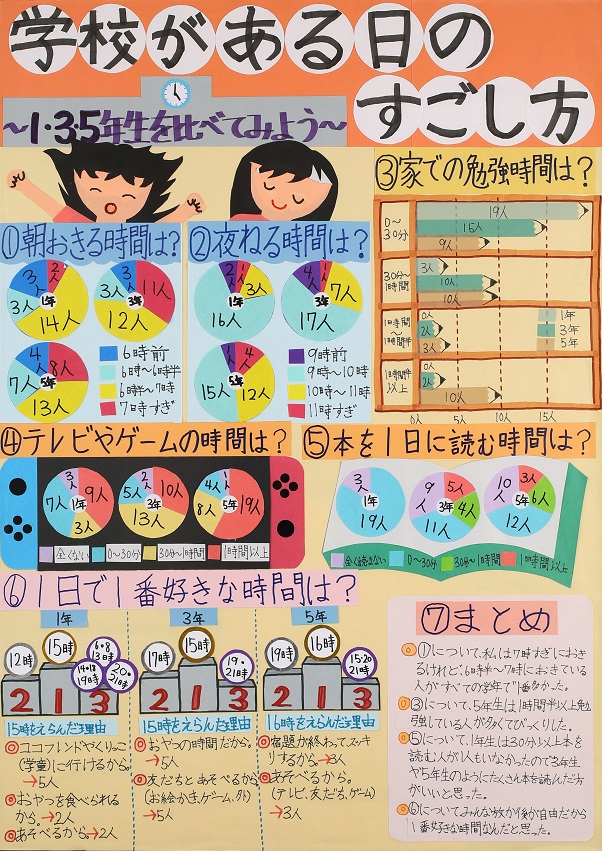 学校がある日の
すごし方
～1・3・5年生を比べてみよう～
①朝おきる時間は?
3人
2人
3人
14人
1年
3人
11人
12人
3年
4人
8人
7人
13人
5年
6時前
6時～6時半
6時半～7時
7時すぎ
②夜ねる時間は?
2人
1人
3人
16人
1年
4人
1人
7人
17人
3年
1人
4人
15人
12人
5年
9時前
9時～10時
10時～11時
11時すぎ
③家での勉強時間は?
0～
30分
19人
15人
9人
30分～
1時間
3人
10人
10人
1時間
～
1時間半
0人
2人
3人
1時間半
以上
0人
2人
10人
1年
3年
5年
0人
5人
10人
15人
④テレビやゲームの時間は?
3人
9人
7人
3人
1年
2人
10人
5人
13人
3年
1人
4人
8人
19人
5年
全くない
0～30分
30分～1時間
1時間以上
⑤本を1日に読む時間は?
3人
19人
1年
9人
5人
4人
11人
3年
10人
3人
6人
12人
5年
全く読まない
0～30分
30分～1時間
1時間以上
⑥1日で1番好きな時間は?
1年
12時
15時
6・8
13時
14・18
19時
20・
21時
2 1 3
15時をえらんだ理由
◎ココフレンドやくりっこ
(学童)に行けるから。
→5人
◎おやつを食べられる
から。→2人
◎あそべるから。→2人
3年
17時
15時
19・
21時
2 1 3
15時をえらんだ理由
◎おやつの時間だから。
→5人
◎友だちとあそべるから。
(お絵かき、ゲーム、外)
→5人
5年
19時
16時
15・20
21時
2 1 3
16時をえらんだ理由
◎宿題が終わってスッキ
リするから。→3人
◎あそべるから。
(テレビ、友だち、ゲーム)
→3人
⑦まとめ
◎①について、私は7時すぎにおき
るけれど、6時半～7時におきている
人がすべての学年で1番多かった。
◎③について、5年生は1時間半以上勉
強している人が多くてびっくりした。
◎⑤について、1年生は30分以上本を
読む人が1人もいなかったので3年生
や5年生のようにたくさん本を読んだ方
がいいと思った。
◎⑥についてみんな放か後が自由だから
1番好きな時間なんだと思った。